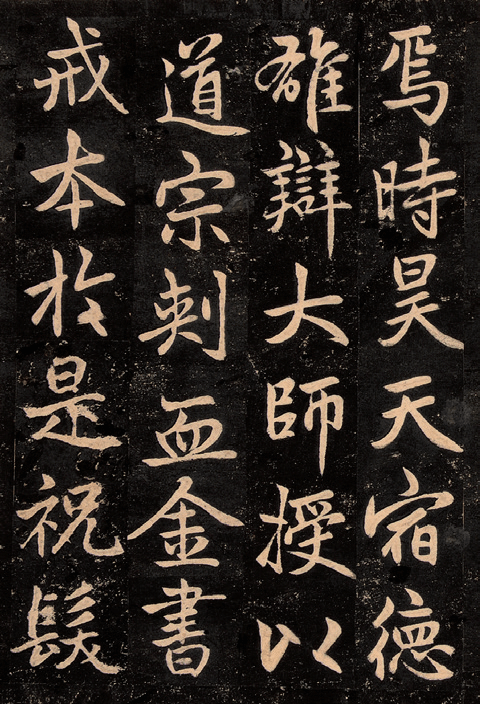 焉時昊天宿德
雄辯大師授以
道宗刺血金書
戒本於是祝髮